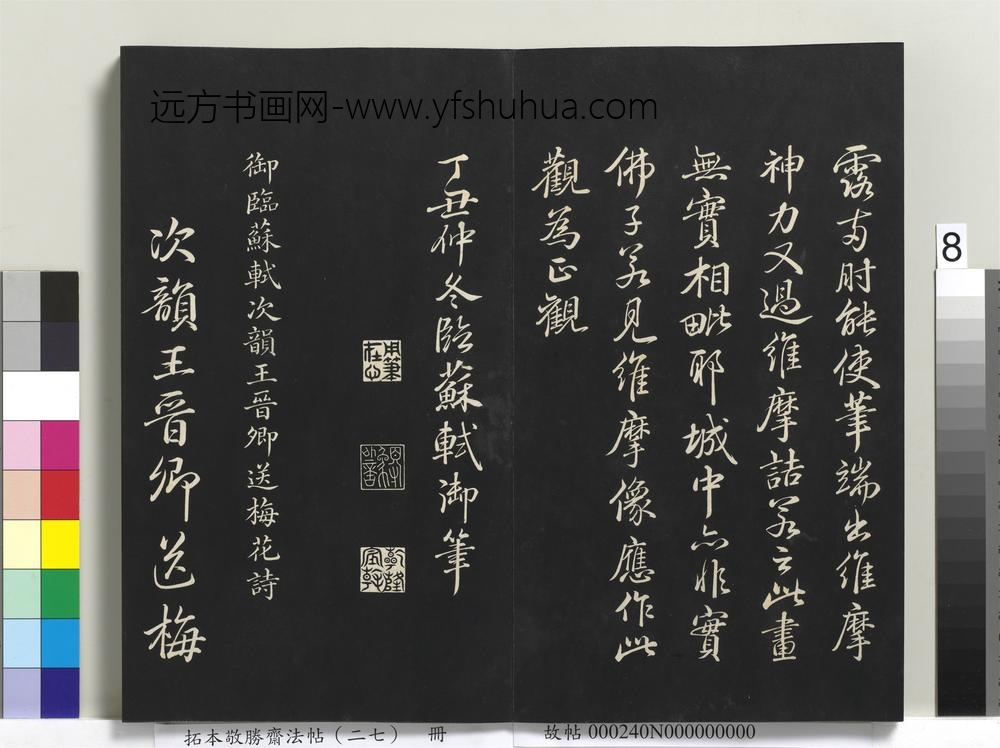 远方书画网-www.yfshuhua.com
露才肘能使筆端出維摩
神力又過維摩詰若云此畫
無實相毗耶城中亦非實
佛子若見維摩像應作此
觀為正觀
丁丑仲冬臨蘇軾御筆
用筆在心
乾隆宸翰
御臨蘇軾次韻王晉卿送梅花詩
次韻王晉卿送梅
8
拓本敬勝齋法帖（二七） 冊
故帖 000240N000000000